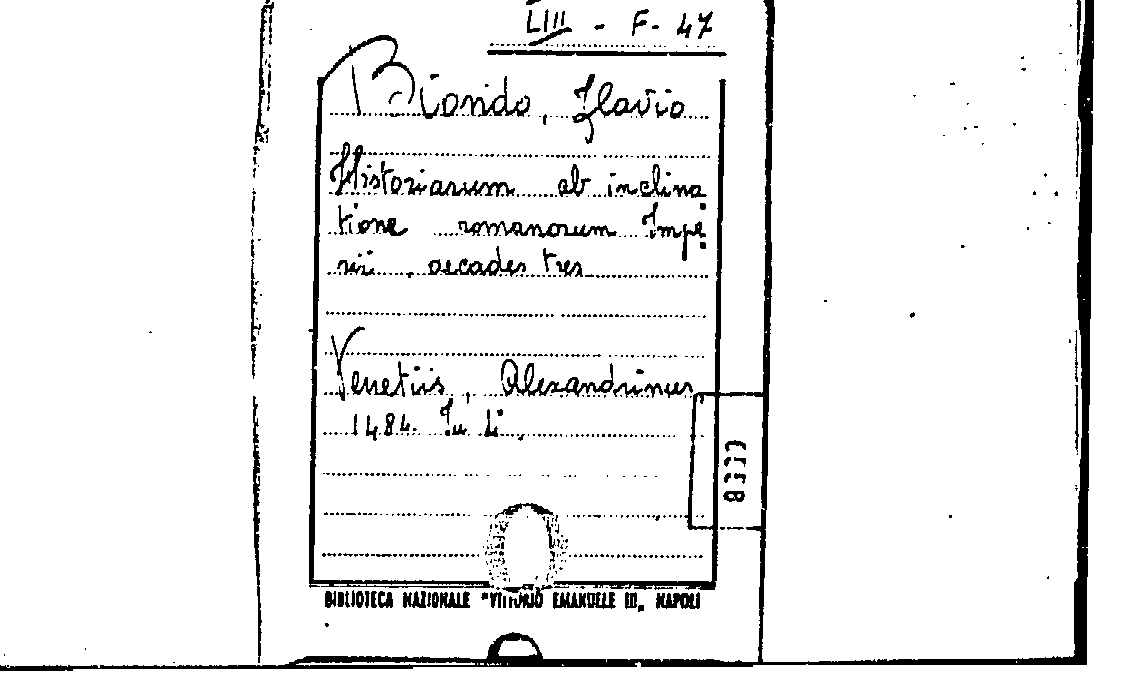 LIII - F- 47
Biondo, Flavio
Historiarum ab inclina
tione romanorum Impe
rii, decades tres
Venetiis, Alexandrinus,
1484. In
BIBLIOTECA NAZIONALE "VITTORIO EMANUELE III, NAPOLI